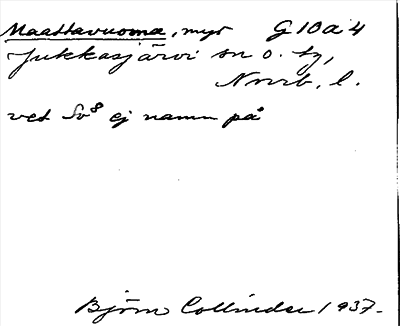 Maattavuoma, myr G 10 a 4
Jukkasjärvi sn o. tg,
Norrb. l.
vet Sv⁸ ej namn på
Björn Collinder 1937.